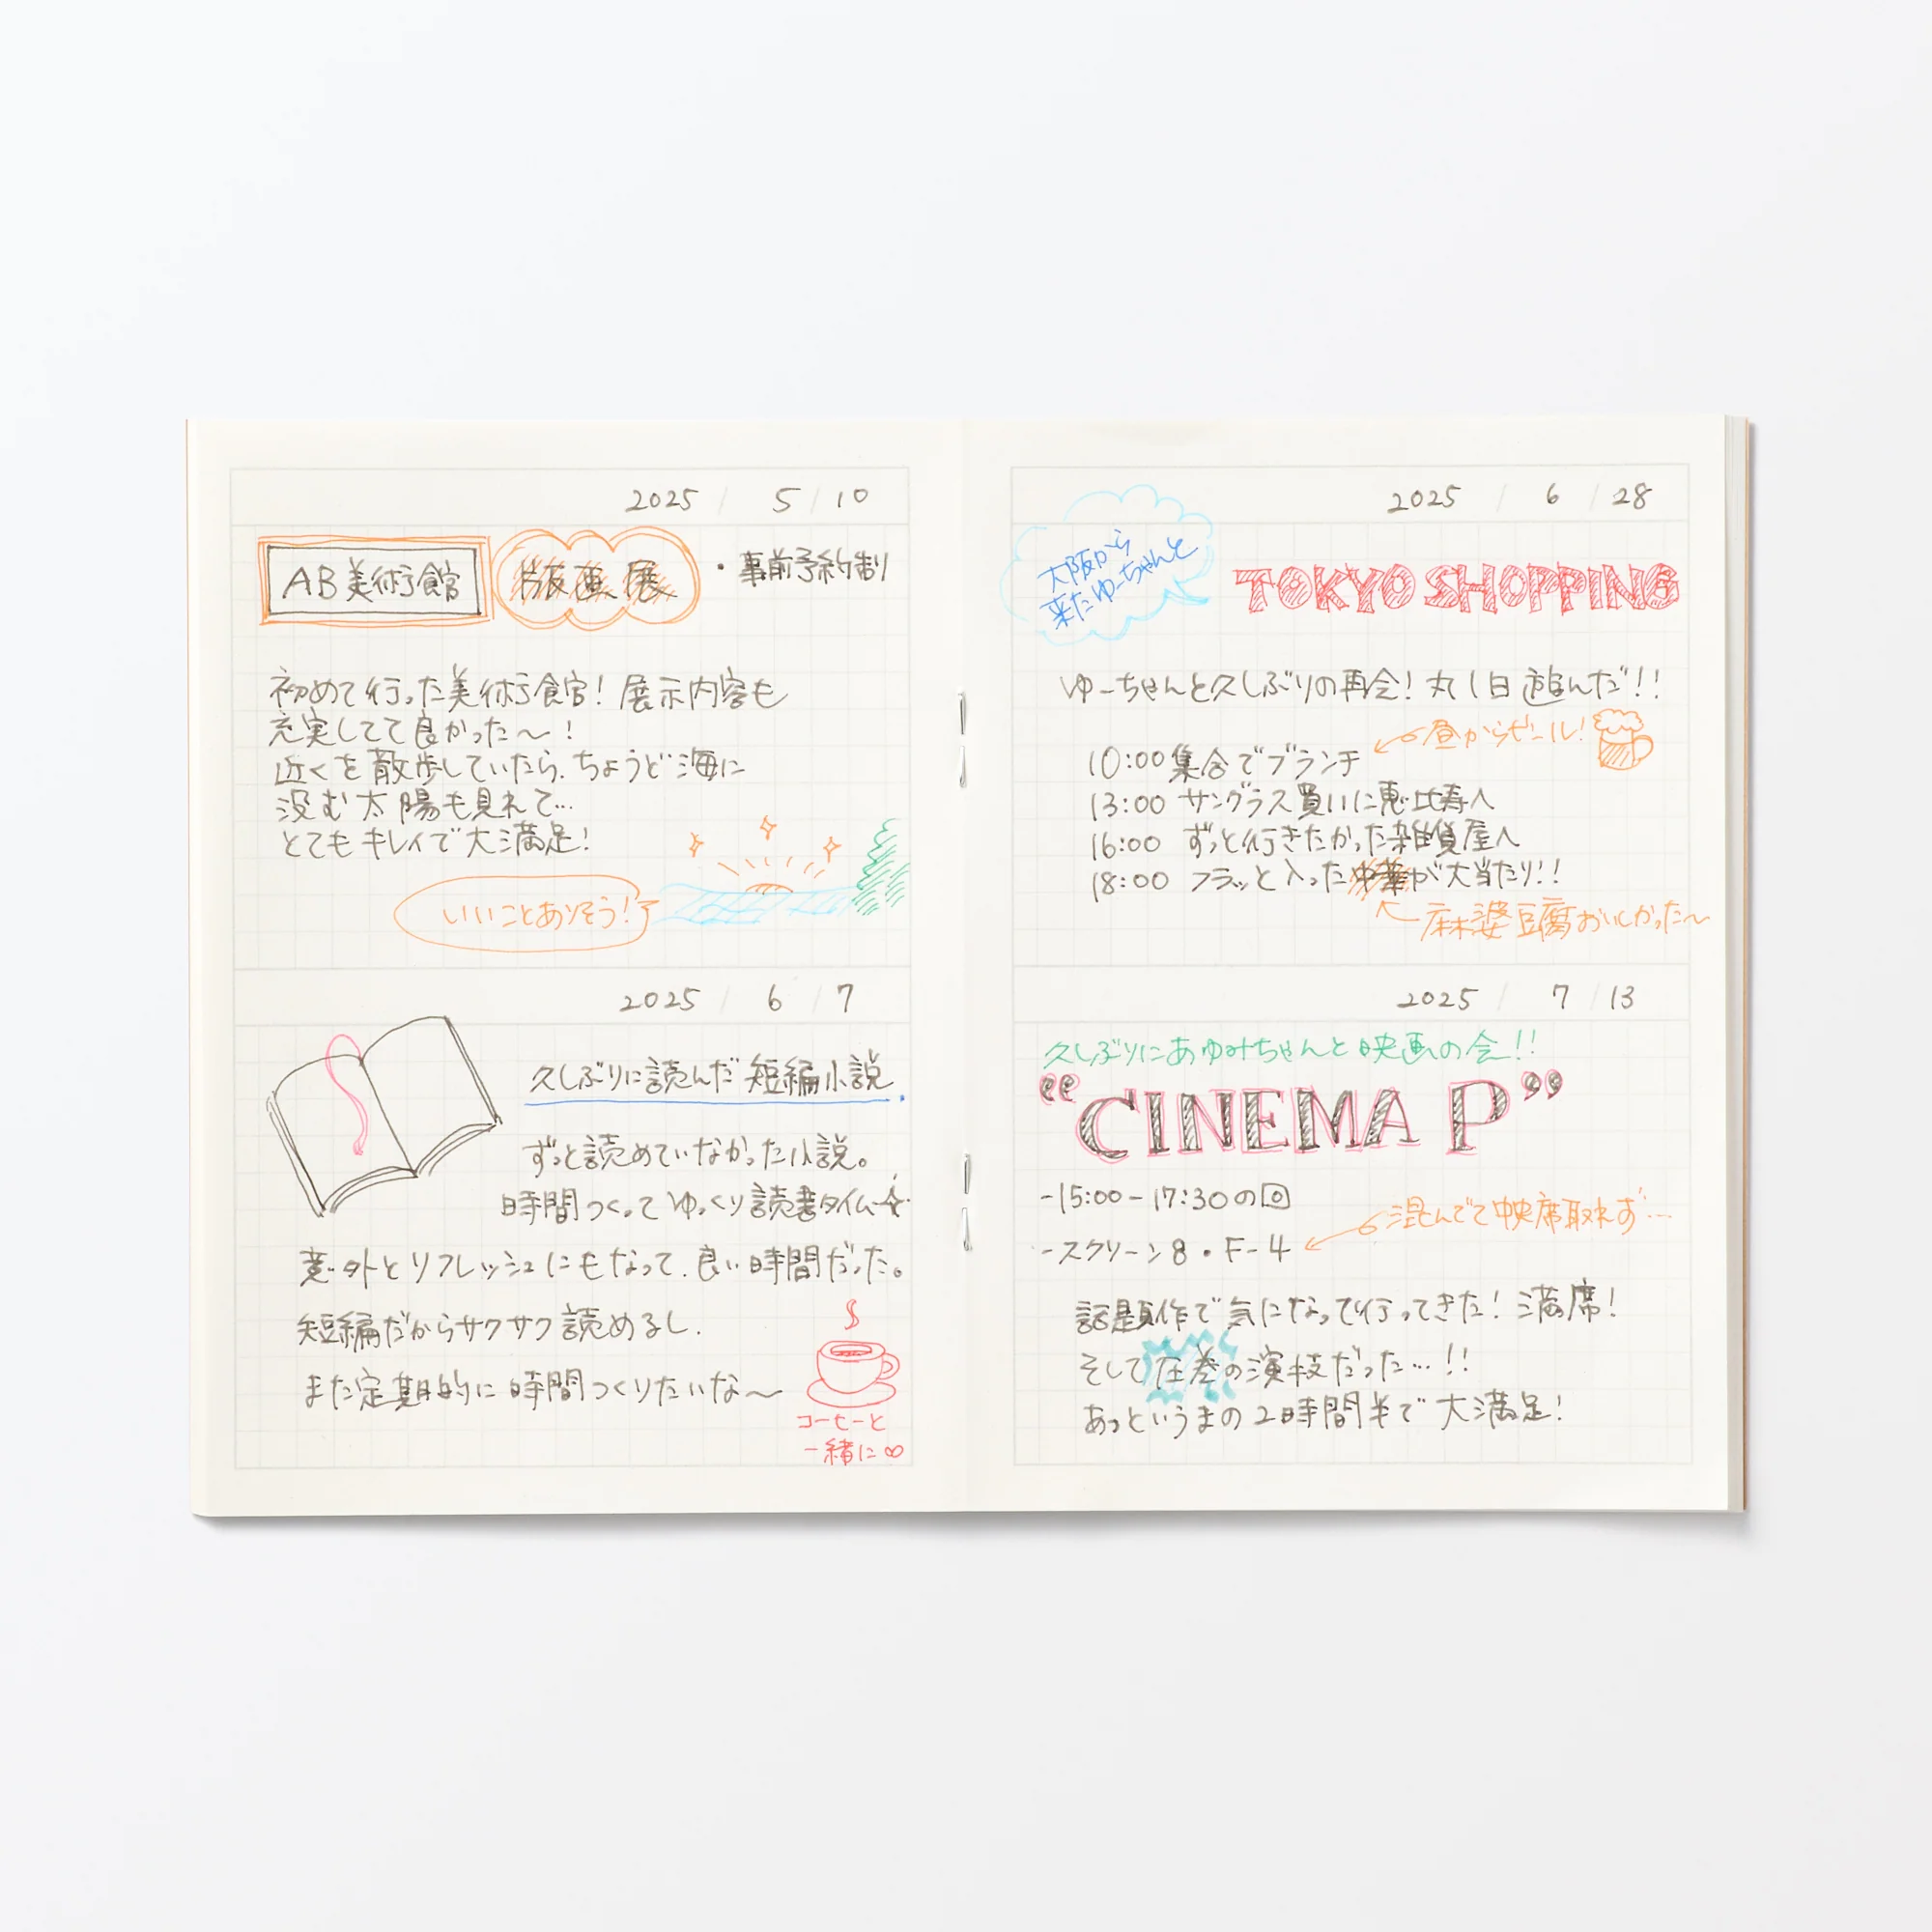 2025 / 5 / 10
AB美術館 版画展 ・事前予約制
初めて行った美術館！展示内容も
充実してて良かった〜！
近くを散歩していたら、ちょうど海に
没む太陽も見れて…
とてもキレイで大満足！
いいことありそう！
2025 / 6 / 7
久しぶりに読んだ短編小説.
ずっと読めていなかった小説。
時間つくってゆっくり読書タイム☆
意外とリフレッシュにもなって、良い時間だった。
短編だからサクサク読めるし、
また定期的に時間つくりたいな〜
コーヒーと
一緒に∞
2025 / 6 / 28
大阪から
来たゆーちゃんと
TOKYO SHOPPING
ゆーちゃんと久しぶりの再会！丸1日遊んだ！！
昼からビール！
10:00 集合でブランチ
13:00 サングラス買いに恵比寿へ
16:00 ずっと行きたかった雑貨屋へ
18:00 フラッと入った中華が大当たり！！
麻婆豆腐おいしかった〜
2025 / 7 / 13
久しぶりにあゆみちゃんと映画の会！！
“CINEMA P”
-15:00-17:30の回
混んでて中央席取れず…
-スクリーン8・F-4
話題作で気になって行ってきた！満席！
そして圧巻の演技だった…！！
あっというまの2時間半で大満足！